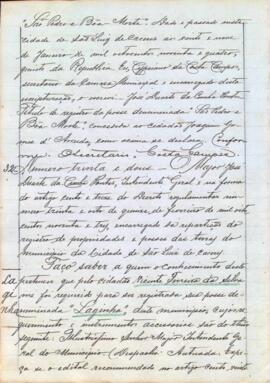 "São Pedro e Bôa Morte". Dado e passado nesta
cidade de São Luiz de Caceres ao onze
de Janeiro de mil oitocentos noventa e quatro,
quinto da Republica. Eu, da Costa Campos
Secretario da Camara Municipal e encarregado desta
o escrevi. José Duarte da Cunha Pontes
Titulo de registro da posse denominada "São Pedro e
Bôa Morte" concedida ao cidadão Joaquim
d'Arruda, como acima se declara. Confor-
me. O Secretario. Costa Campos
Numero trinta e dous — Major José
Duarte da Cunha Pontes, Intendente Geral e na forma
do artigo cento e treze do Decreto regulamentar nu-
mero trinta e oito de quinze de Fevereiro de mil oito
centos noventa e tres, encarregado da repartição do
registro de propriedades e posses das terras do
municipio da Cidade de São Luiz de Caceres
Faço saber a quem o conhecimento deste
pertencer que pelo cidadão Ferreira da Silva
me foi requerido para ser registrada sua posse de-
nominada "Laginha", deste municipio, cujo re-
querimento e instrumentos accessorios são do theor
seguinte: Illustrissimo Senhor Major Intendente Ge-
ral do Municipio (Despacho) Autuada. Expe-
ça-se o edital recommendado no artigo cento vinte